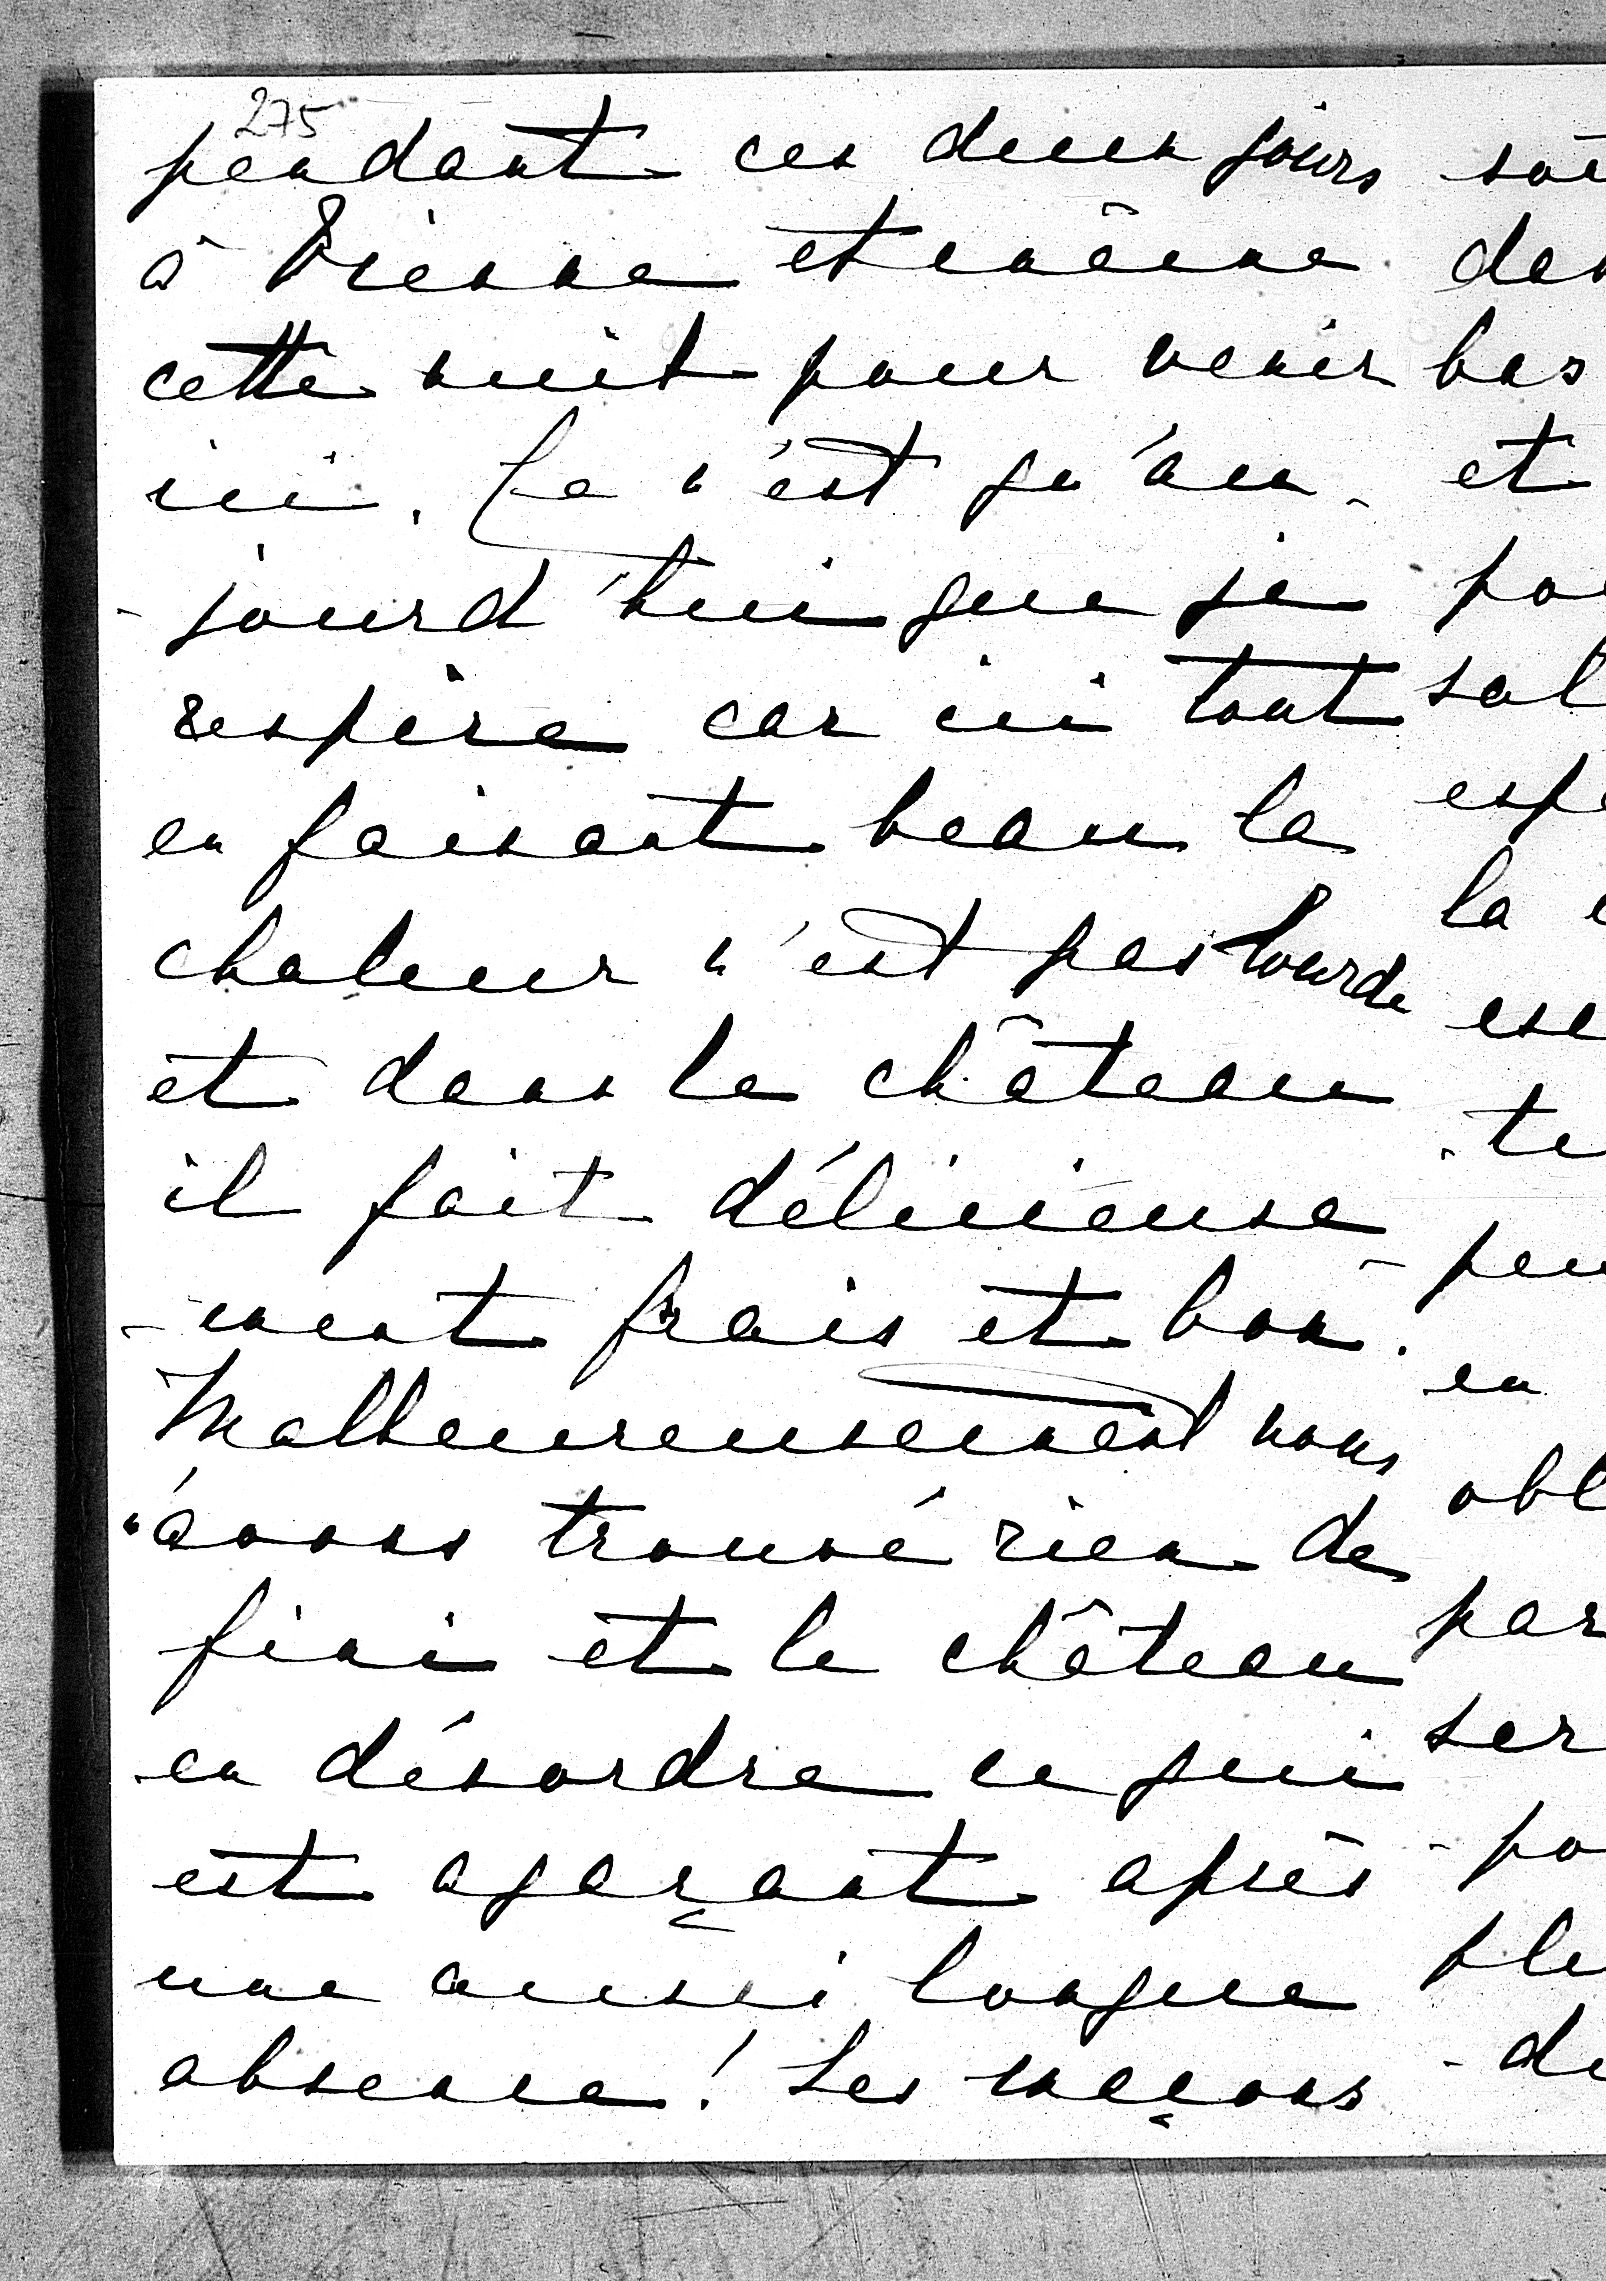 275
pendant ces deux jours
à Vienne et même
cette nuit pour venir
ici. Ce n'est qu'au-
-jourd'hui que je
respire car ici tout
en faisant beau la
chaleur n'est pas lourde
et dans le château
il fait délicieuse-
-ment frais et bon.
Malheureusement nous
n'avons trouvé rien de
fini et le château
en désordre ce qui
est agaçant après
une aussi longue
absence! Les maçons
et
la
en